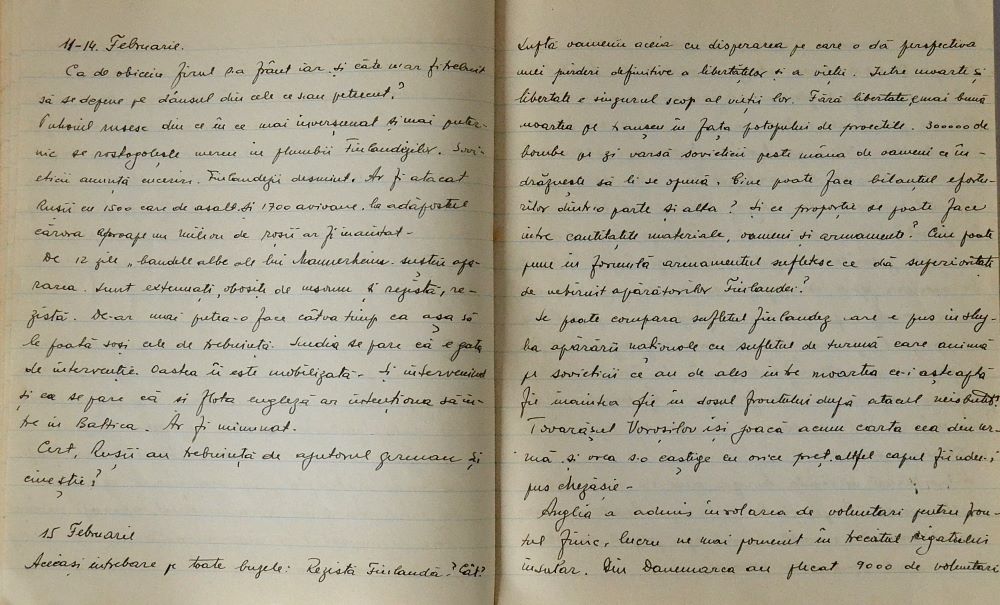 11-14. Februarie.
Ca de obicein firul s-a frânt iar și câte n-ar fi trebuit
să se depene pe dânsul din cele ce s-au petrecut?
Puhoiul rusesc din ce în ce mai înverșunat și mai puter-
nic se rostogolește mereu în plumbii Finlandejilor. Sovi-
eticii anunță cuceriri. Finlandejii desmint. Ar fi atacat
Rușii cu 1500 care de asalt și 1700 avioane, la adăpostul
cărora aproape un milion de roșii ar fi înaintat -
De 12 zile „bandele albe ale lui Mannerheim. susțin apă-
rarea. Sunt extenuați, obosiți de nesomn și rezistă, re-
zistă. De-ar mai putea-o face câtva timp ca așa să
le poată sosi cele de trebuință. Suedia se pare că e gata
de intervenție. Oastea îi este mobilizată. Și intervenind
și ea se pare că și flota engleză ar intenționa să in-
tre în Baltica. Ar fi minunat.
Cert, Rușii au trebuință de ajutorul german și
cine știe?
15 Februarie
Aceeași întrebare pe toate buzele: Rezistă Finlanda? Cât?
Luptă oamenii aceia cu disperarea pe care o dă perspectiva
unei pierderi definitive a libertăților și a vieții. Între moarte și
libertate e singurul scop al vieții lor. Fără libertate, e mai bună
moartea pe tranșeu în fața potopului de proectile. 300000 de
bombe pe zi varsă sovieticii peste mâna de oameni ce în-
drăznește să li se opună. Cine poate face bilanțul efortu-
rilor dintr-o parte și alta? Și ce proporție se poate face
între cantitățile materiale, oameni și armamente? Cine poate
pune în formulă armamentul sufletesc ce dă superioritate
de nebiruit apărătorilor Finlandei?
Se poate compara sufletul finlandez care e pus în sluj-
ba apărării naționale cu sufletul de turmă care animă
pe sovieticii ce au de ales între moartea ce-i așteaptă
fie înaintea fie în dosul frontului după atacul neisbutit?
Tovarășul Voroșilov își joacă acum carta cea din ur-
mă și vrea s-o câștige cu orice preț, altfel capul fiindu-i
pus chezășie -
Anglia a admis înrolarea de voluntari pentru fron-
tul finic, lucru ne mai pomenit în trecutul regatului
insular. Din Danemarca au plecat 9000 de voluntari